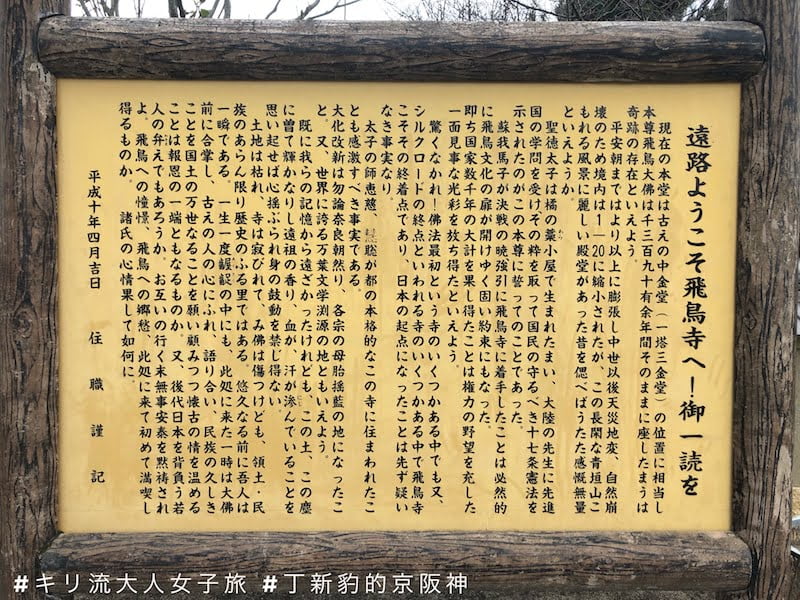 遠路ようこそ飛鳥寺へ！御一読を
現在の本堂は古えの中金堂（一塔三金堂）の位置に相当し
本尊飛鳥大佛は千三百九十有余年間そのままに座したまうは
奇跡の存在といえよう。
平安朝まではより以上に膨張し中世以後天災地変、自然崩
壊のため境内は1―20に縮小されたが、この長閑な青垣山こ
もれる風景に麗しい殿堂があった昔を偲べばうたた感慨無量
といえようか。
聖徳太子は橘の藁小屋で生まれたまい、大陸の先生に先進
国の学問を受けその粋を取って国民の守るべき十七条憲法を
示されたのがこの本尊に誓ってのことであった。
蘇我馬子が決戦の暁強引に飛鳥寺に着手したことは必然的
に飛鳥文化の扉が開けゆく固い約束にもなった。
即ち国家数千年の大計を果し得たことは権力の野望を充した
一面見事な光彩を放ち得たといえよう。
驚くなかれ！佛法最初という寺のいくつかある中でも又、
シルクロードの終点といわれる寺のいくつかある中で飛鳥寺
こそその終着点であり、日本の起点になったことは先ず疑い
なき事実なり。
太子の師恵慈、慧聡が都の本格的なこの寺に住まわれたこ
とも感激すべき事実である。
大化改新は勿論奈良朝然り、各宗の母胎揺籃の地になったこ
と。又、世界に誇る万葉文学渕源の地ともいえよう。
既に我らの記憶から遠ざかったけれども、この土、この塵
に曽て輝かなりし遠祖の香り、血が、汗が滲んでいることを
思い起せば心揺ぶられ身の鼓動を禁じ得ない。
土地は枯れ、寺は寂びれて、み佛は傷つけども、領土・民
族のあらん限り歴史のふる里ではある。悠久なる前に吾人は
一瞬である。一生一度齷齪の中にも、此処に来た一時は大佛
前に合掌し、古えの人の心にふれ、語り合い、民族の久しき
ことを国土の万世なることを願い顧みつつ懐古の情を温める
ことは報恩の一端ともなるものか。又、後代日本を背負う若
人の弁えでもあろうか。お互いの行く末無事安泰を黙祷され
よ。飛鳥への憧憬、飛鳥への郷愁、此処に来て初めて満喫し
得るものか。　諸氏の心情果して如何に。
平成十年四月吉日　住職謹記
#キリ流大人女子旅 #丁新豹的京阪神